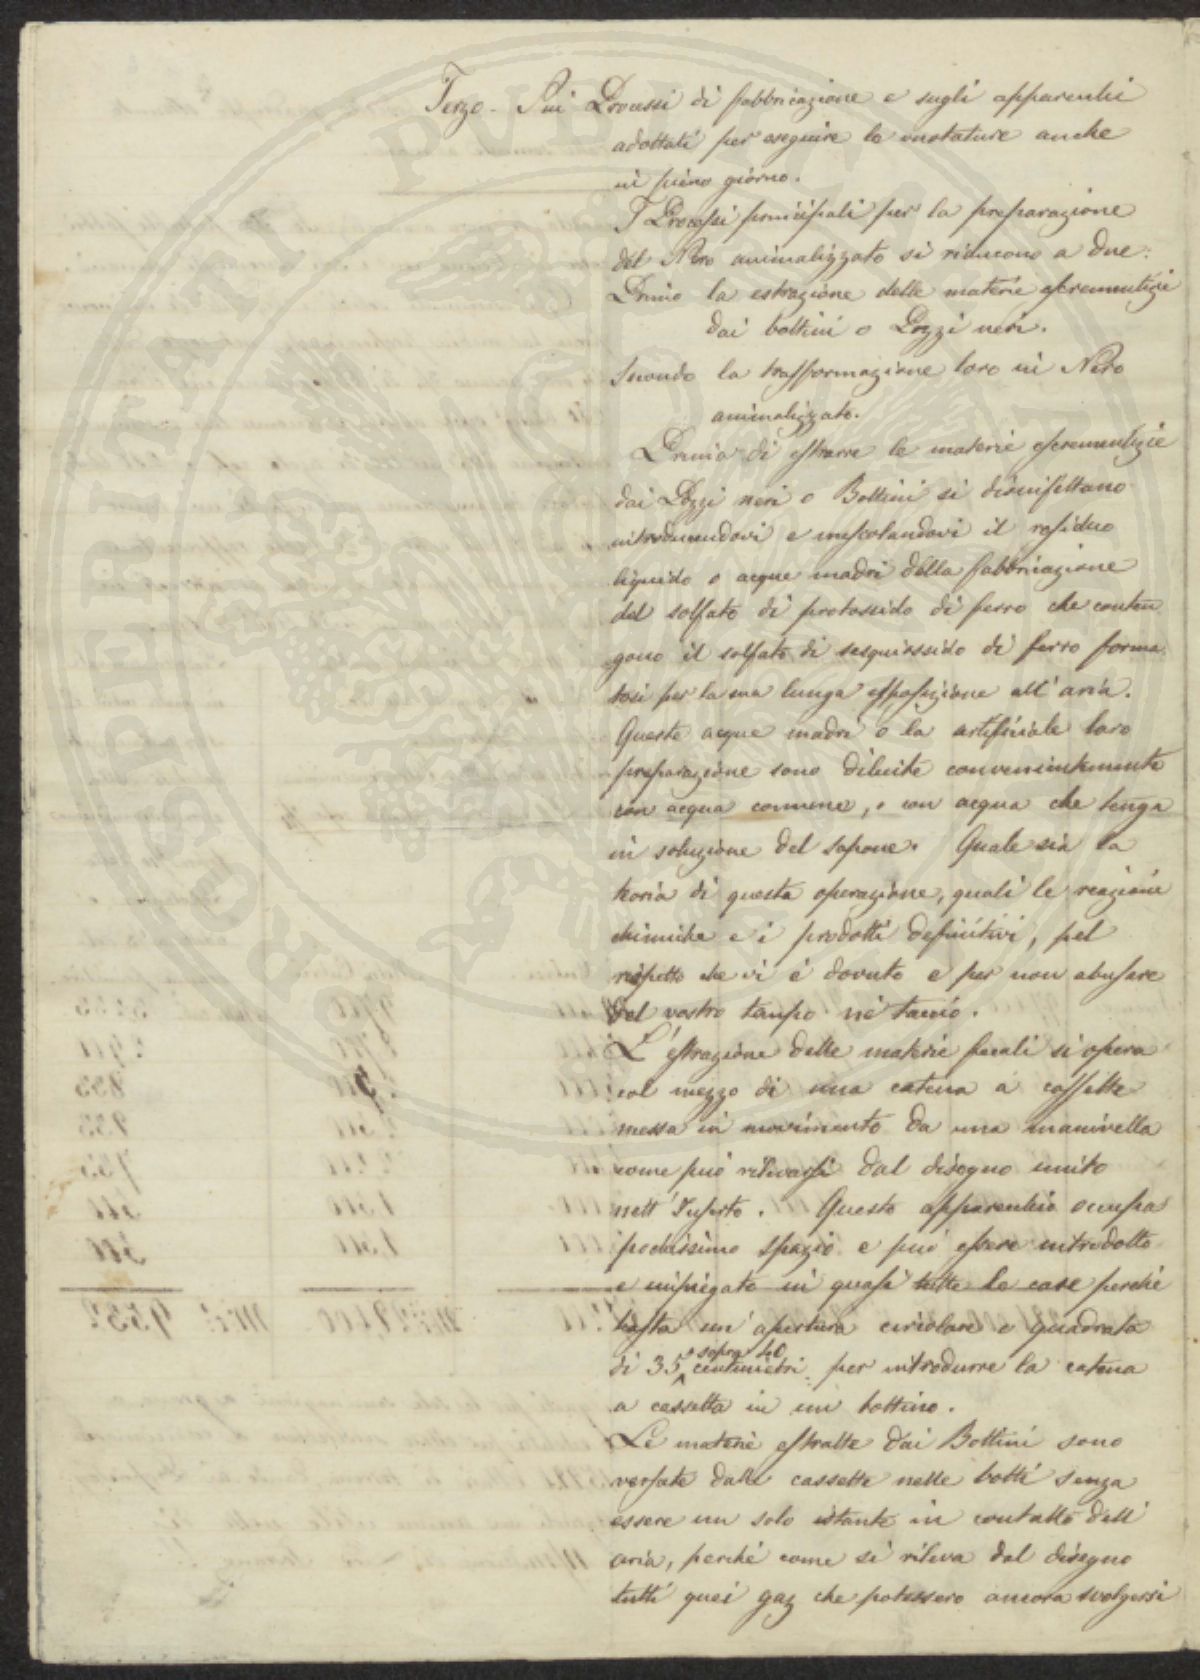 Terzo - Sui Processi di fabbricazione e sugli apparecchi
adottati per eseguire le vuotature anche
in pieno giorno.
I Processi principali per la preparazione
del Nero animalizzato si riducono a due:
Primo la estrazione delle materie escrementizie
dai bottini o Pozzi neri.
Secondo la trasformazione loro in Nero
animalizzato.
Prima di estrarre le materie escrementizie
dai Pozzi neri o Bottini si disinfettano
introducendovi e mescolandovi il residuo
liquido o acque madri della fabbricazione
del solfato di protossido di ferro che conten
gono il solfato di sesquiossido di ferro forma
tosi per la sua lunga esposizione all'aria.
Queste acque madri o la artificiale loro
preparazione sono diluite convenientemente
con acqua comune, o con acqua che tenga
in soluzione del sapone. Quale sia la
teoria di questa operazione, quali le reazioni
chimiche e i prodotti definitivi, pel
rispetto che vi è dovuto e per non abusare
del vostro tempo nè taccio.
L'estrazione delle materie fecali si opera
col mezzo di una catena a cassette
messa in movimento da una manivella
come può rilevarsi dal disegno unito
nell'Inserto. Questo apparecchio occupa
pochissimo spazio e può essere introdotto
e impiegato in quasi tutte le case perchè
basta un'apertura circolare o quadrata
o sopra 40
di 35 centimetri per introdurre la catena
a cassetta in un bottino.
Le materie estratte dai Bottini sono
versate dalle cassette nelle botti senza
essere un solo istante in contatto dell'
aria, perchè come si rileva dal disegno
tutti quei gaz che potessero ancora svolgersi
PROSPERITATI PUBLICAE